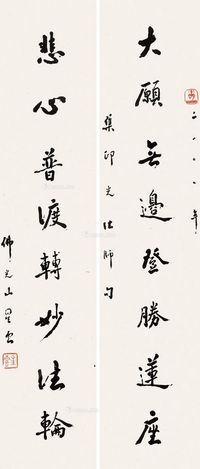 二〇〇八年
大願無邊登勝蓮座
集印光法師句
悲心普渡轉妙法輪
佛光山星雲